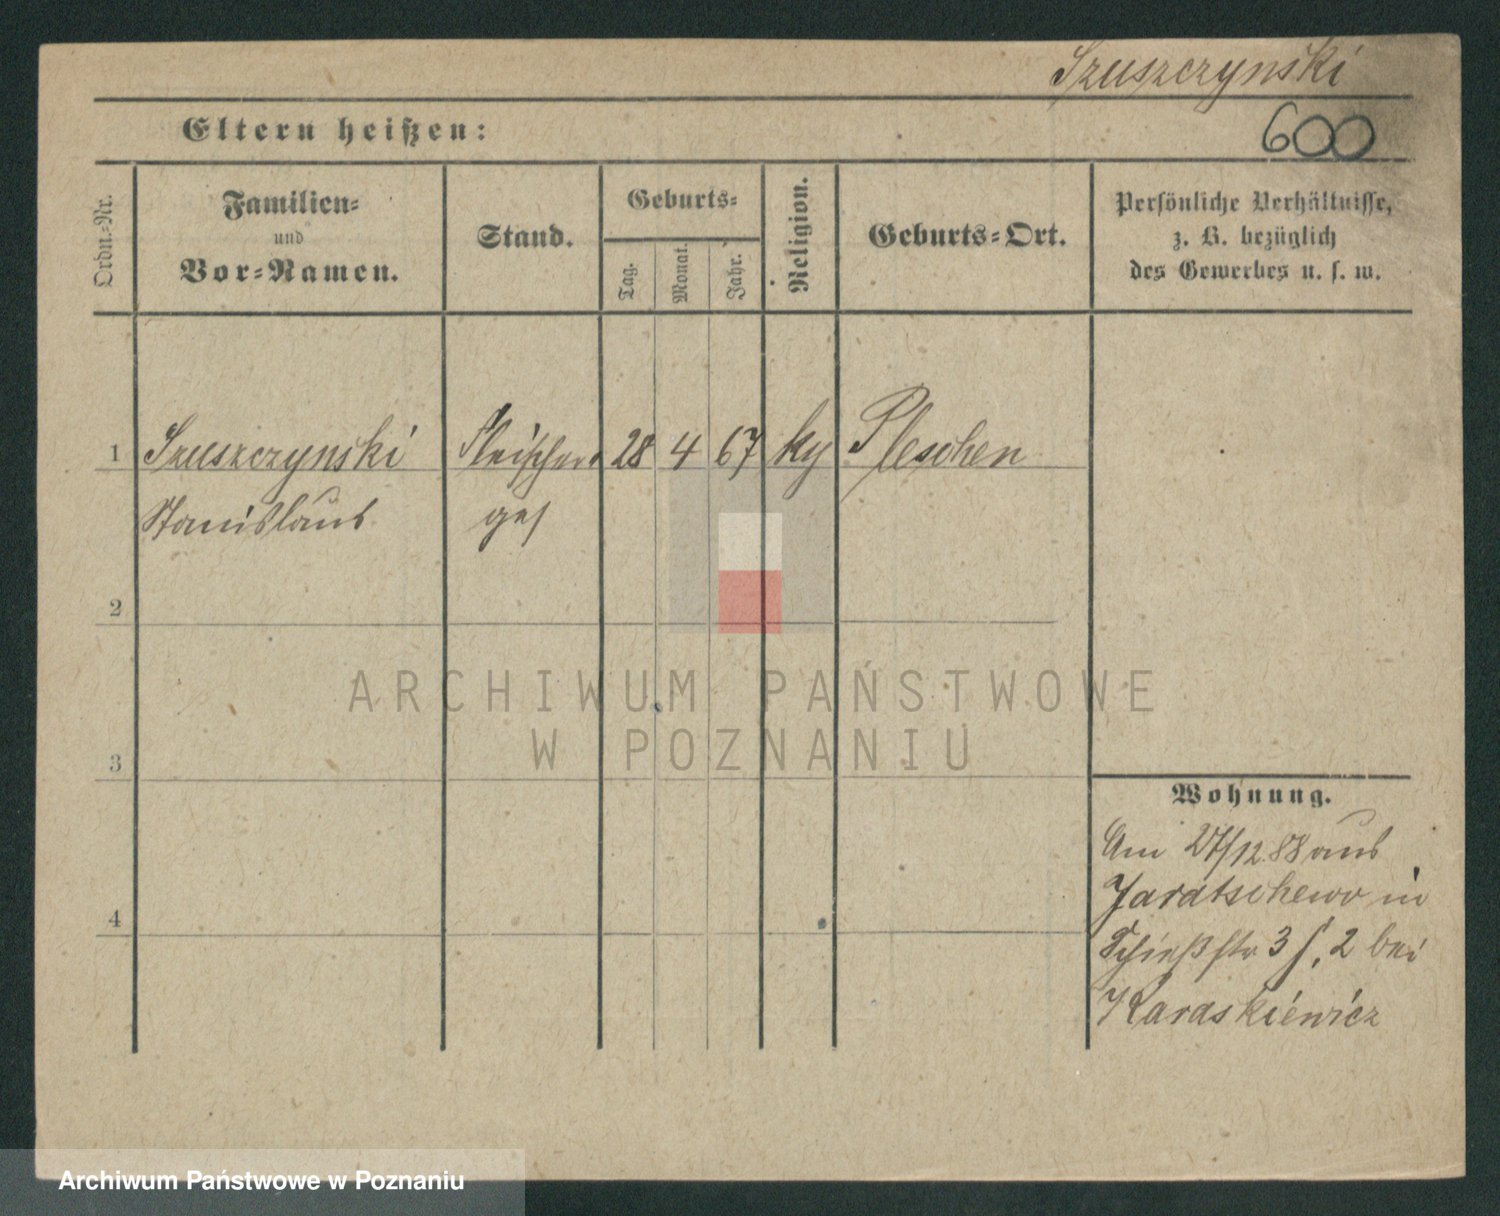 Szuszczynski
Eltern heißen:
600
Ordn.-Nr.
Familien-
und
Vor-Namen.
Stand.
Geburts-
Tag.
Monat.
Jahr.
Religion.
Geburts-Ort.
Persönliche Verhältnisse,
z. B. bezüglich
des Gewerbes u. s. w.
1 Szuszczynski Fleischer 28 4 67 Pleschen
Stanislaus ges
2
3
4
Wohnung.
Am 27/12 88 aus
Jaratschewo in
Schießstr 3 2 bei
Karaskiewicz
ARCHIWUM PAŃSTWOWE
W POZNANIU
Archiwum Państwowe w Poznaniu